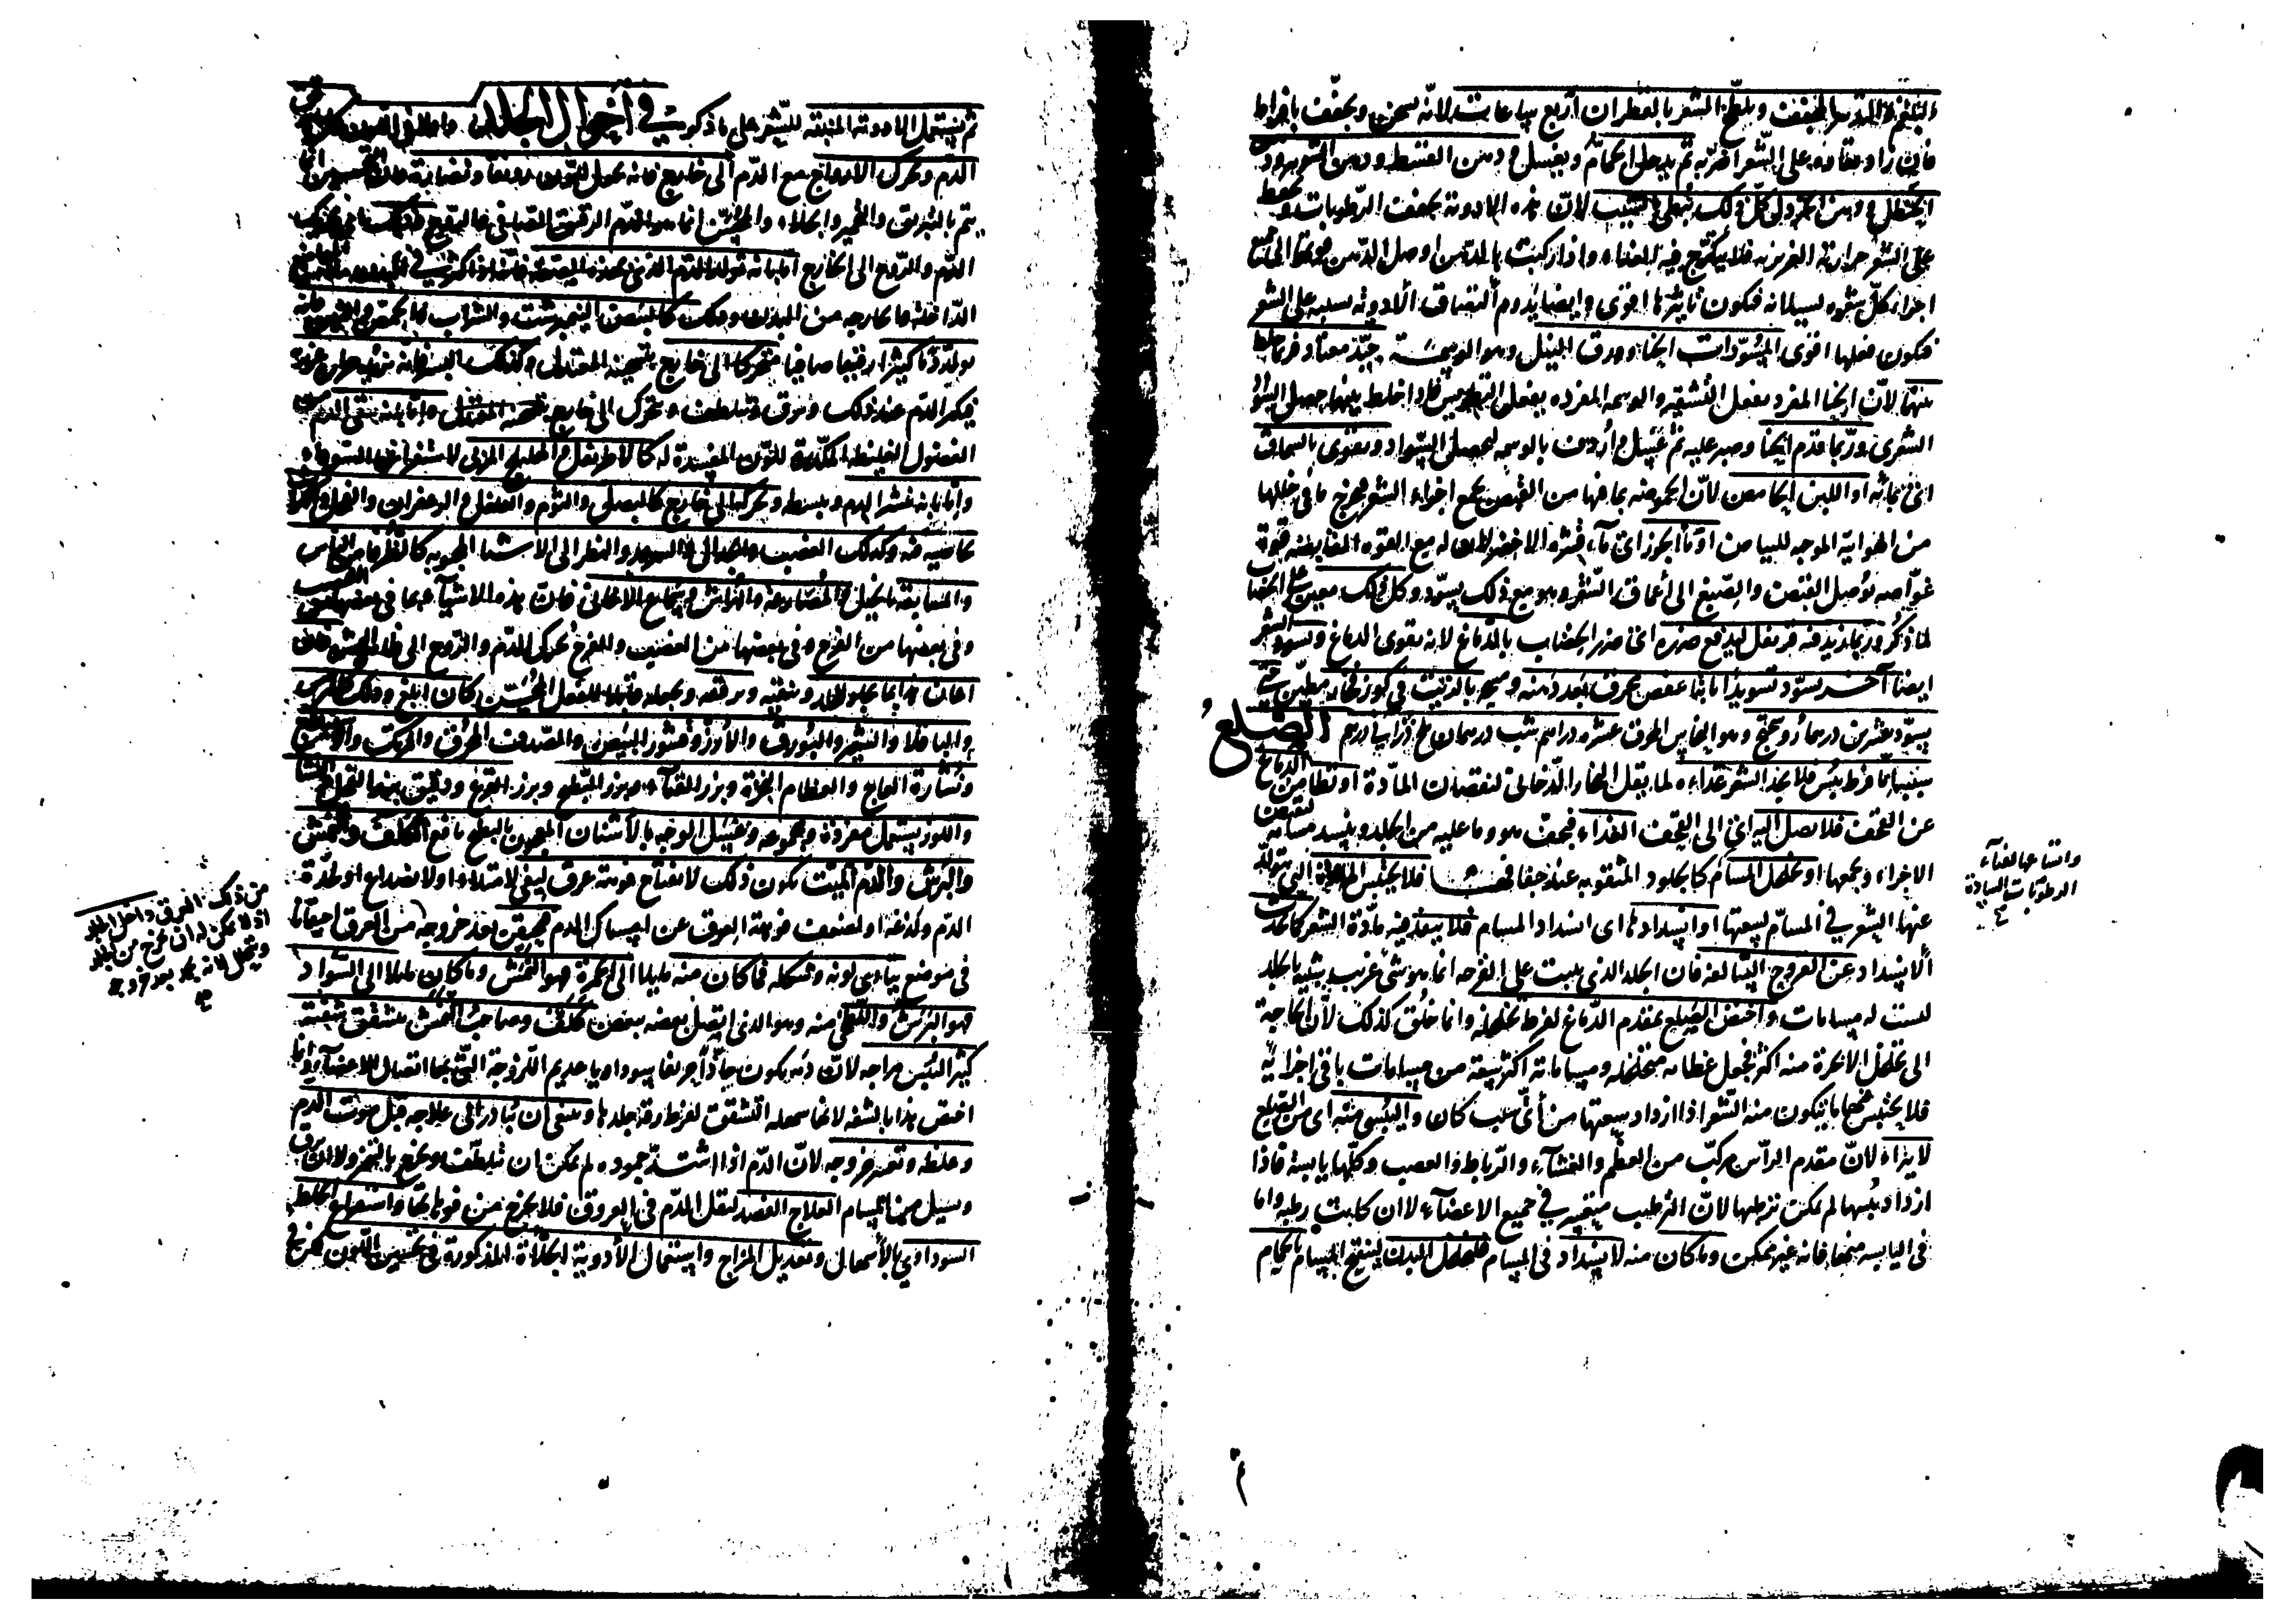 والتدبير المجفف ويلطخ الشعر بالقطران أربع ساعات لانه يسخن ويجفف بافراط
فان زاد مقامه على الشعر اضرّ به ثم يدخل الحمام ويغسل ودهن القسط ودهن الشونيز ودهن
الحنظل ودهن الخردل كل ذلك يبطئ بالشيب لان هذه الادوية تجفف الرطوبات وتحفظ
على الشعر حرارته الغريزية فلا يتكرج فيه الغذاء واذا ركبت بالدهن اوصل الدهن قوتها الى جميع
اجزاء كل شعرة لسيلانه فيكون تأثيرها اقوى وايضا يدوم التصاق الادوية بسببه على الشعر
فيكون فعلها اقوى المسوّدات الحنا وورق النيل وهو الوسمة جيّد معتاد فربما خلط
بينها لانّ الحنا المفرد يفعل التشقير والوسمة المفردة يفعل التطويس فاذا خلط بينهما حصل السواد
الشعرى وربّما قدم الحنا وصبر عليه ثم غسل وأردف بالوسمة ليحصل السواد ويقوى بالسماق
اى بمائه او اللبن الحامض لانّ الحموضة بما فيها من القبض يجمع اجزاء الشعر فيخرج ما فى خللها
من الهوائية الموجبة للبياض او ماء الجوز اى ماء قشره الاخضر لان له مع القوة القابضة قوة
غوّاصة توصل القبض والصبغ الى أعماق الشعر وهو مع ذلك يسوّد وكل ذلك معين على الخضاب
لما ذكر وربما زيد فيه قرنفل ليدفع ضرره اى ضرر الخضاب بالدماغ لانه يقوى الدماغ ويسود الشعر
ايضا آخر يسوّد تسويدا ثابتا عفص يحرق بعد دهنه ومسحه بالزيت فى كوز فخار مطين حتى
يسوّد عشرين درهما روسختج وهو النحاس المحرق عشرة دراهم شب درهمان ملح ذرآنى درهم الصلع
سببه إمّا فرط يبس فلا يجد الشعر غذاءه لما يقل البخار الدخانى لنقصان المادة او تطامن الدماغ
عن القحف فلا يصل اليه اى الى القحف الغذاء فيجف هو وما عليه من الجلد وينسد مسامه لتقبض
الاجزاء وجمعها او تخلخل المسام كالجلود المثقوبة عند جفافها فلا يحتبس المادة التى يتولد
عنها الشعر فى المسامّ لسعتها او انسدادها اى انسداد المسام فلا ينفذ فيه مادّة الشعر كما يحدث
الانسداد عن القروح السالفة فان الجلد الذى ينبت على القرحة انما هو شئ غريب شبيه بالجلد
ليست له مسامات واختص الصلع بمقدم الدّماغ لفرط تخلخله وانما خلق كذلك لأن الحاجة
الى تحلل الابخرة منه اكثر فجعل عظامه متخلخلة ومساماته اكثر سعة من مسامات باقى اجزائه
فلا يحتبس فيها ما يتكون منه الشعر اذا ازداد سعتها من أىّ سبب كان واليبسى منه اى من الصلع
لا يبرأ لان مقدم الرأس مركب من العظم والغشآء والرباط والعصب وكلّها يابسة فاذا
ازداد يبسها لم يمكن ترطيبها لانّ الترطيب متعسر فى جميع الاعضآء لا ان كانت رطبة واما
فى اليابسة منها فانه غير ممكن وما كان منه لانسداد فى المسام فتخلخل البدن لينفتح المسام بالحمام
وانتفاخها لفناء
الرطوبات السادة
ثم يستعمل الادوية المنبتة للشعر على ما ذكر فى أحوال الجلد
الدّم وتحرك الارواح مع الدّم الى خارج فانه يجعل اللون رونقا ونضارة
يتم بالتبريق والتحمير والجلاء والمحسّن انما هو الدّم الرقيق الصافى
الدّم والرّوح الى الخارج امّا بانه تولد الدّم الذى بهذه الصفة فانه اذا كثر
الدّاخلة ما يخارجه من البدن وذلك كالبيض النيمبرشت والشراب
يولّد دمًا كثيرا رقيقا صافيا متحركا الى خارج بتسخينه المعتدل وكذلك
فيكثر الدّم عند ذلك ويرق ويتلطف ويتحرك الى خارج وامّا بانه ينقى الدم من
الفضول الغليظة المكدّرة للون المفسدة له كالاطريفل والهليلج المربى لاستفراغهما السوداء
وامّا بانه ينشر الدم ويبسطه ويحركه الى خارج كالبصل والثوم والفلفل والزعفران
بخاصية فيه وكذلك الغضب والجدال والسهر والنظر الى الاشيا المحبوبة
والمسابقة بالخيل والمصارعة والهراش وسماع الأغانى فان هذه الاشيآء بما فى بعضها من الغضب
وفى بعضها من الفرح وفى بعضها من الغضب والفرح يحرك الدّم والرّوح الى
اعان هذا بما يجلو الجلد وينقيه ويرققه ويجعله قابلا للفعل المحسّن كان ابلغ وذلك
والباقلا والشعير والبورق والأرز وقشور البيض والصدف المحرق
ونشارة العاج والعظام النخرة وبزر القثاء وبزر البطيخ وبزر القرع ودقيق
واللوز يستعمل مفردة ومجموعة ويغسل الوجه بالأشنان المعجون بالبطيخ نافع الكلف والنمش
والبرش والدّم الميّت يكون ذلك لانفتاح فوهة عرق ليفى لامتلاء او لانصداع او لحدّة
الدّم ولذعه او لضعف فوهة العرق عن امساك الدم فيحتقن بعد خروجه من العرق احتقانا
فى موضع يتأدى لونه وشكله فما كان منه مايلا الى الحمرة فهو النمش وما كان مايلا الى السّواد
فهو البرش واللّطخىّ منه وهو الذى اتصل بعضه ببعض كلف وصاحب النمش يتشقق شفته
كثيرا ليبس مزاجه لانّ دمه يكون حادًّا حريفا سوداويا عديم اللزوجة التى بها اتصال الاعضآء وانما
اختص هذا بالشفه لانها سهلة التشقق لفرط رقة جلدها وينبغى ان يبادر الى علاجه قبل موت الدم
وغلظه وتعسر خروجه لانّ الدّم اذا اشتدّ جموده لم يمكن ان يتلطّف ويخرج بالتبخر ولا ان يرق
ويسيل من المسام العلاج الفصد لتقل الدّم فى العروق فلا يخرج من فوهاتها واستفراغ الخلط
السوداوى بالأسهال وتعديل المزاج واستعمال الأدوية الجلّاءة المذكورة فى تحسين اللون
من ذلك العرق داخل الجلد
اذ لا يمكن له ان يخرج من الجلد
ويتحلل لانه يجمد بعد خروجه